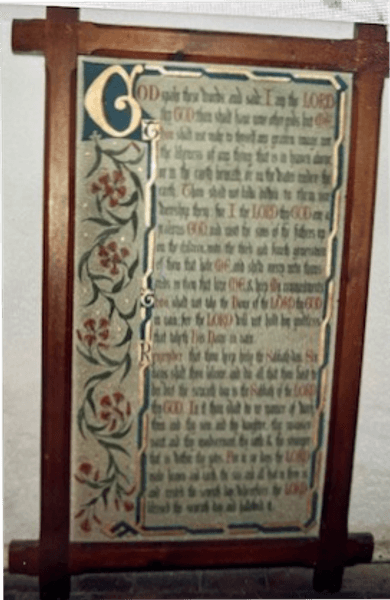 GOD spake these words and said: I am the LORD
thy GOD: thou shalt have none other gods but ME
Thou shalt not make to thyself any graven image, nor
the likeness of any thing that is in heaven above
or in the earth beneath, or in the water under the
earth. Thou shalt not bow down to them nor
worship them: for I the LORD thy GOD am a
jealous GOD and visit the sins of the fathers up
on the children, unto the third and fourth generation
of them that hate ME, and shew mercy unto thous-
ands in them that love ME, & keep My commandments
Thou shalt not take the Name of the LORD thy GOD
in vain: for the LORD will not hold him guiltless
that taketh His Name in vain.
Remember that thou keep holy the Sabbath day. Six
days shalt thou labour and do all that thou hast to
do; but the seventh day is the Sabbath of the LORD
thy GOD. In it thou shalt do no manner of work,
thou and thy son and thy daughter, thy manser-
vant and thy maidservant, thy cattle & the stranger
that is within thy gates. For in six days the LORD
made heaven and earth, the sea and all that in them is
and rested the seventh day; wherefore the LORD
blessed the seventh day and hallowed it.